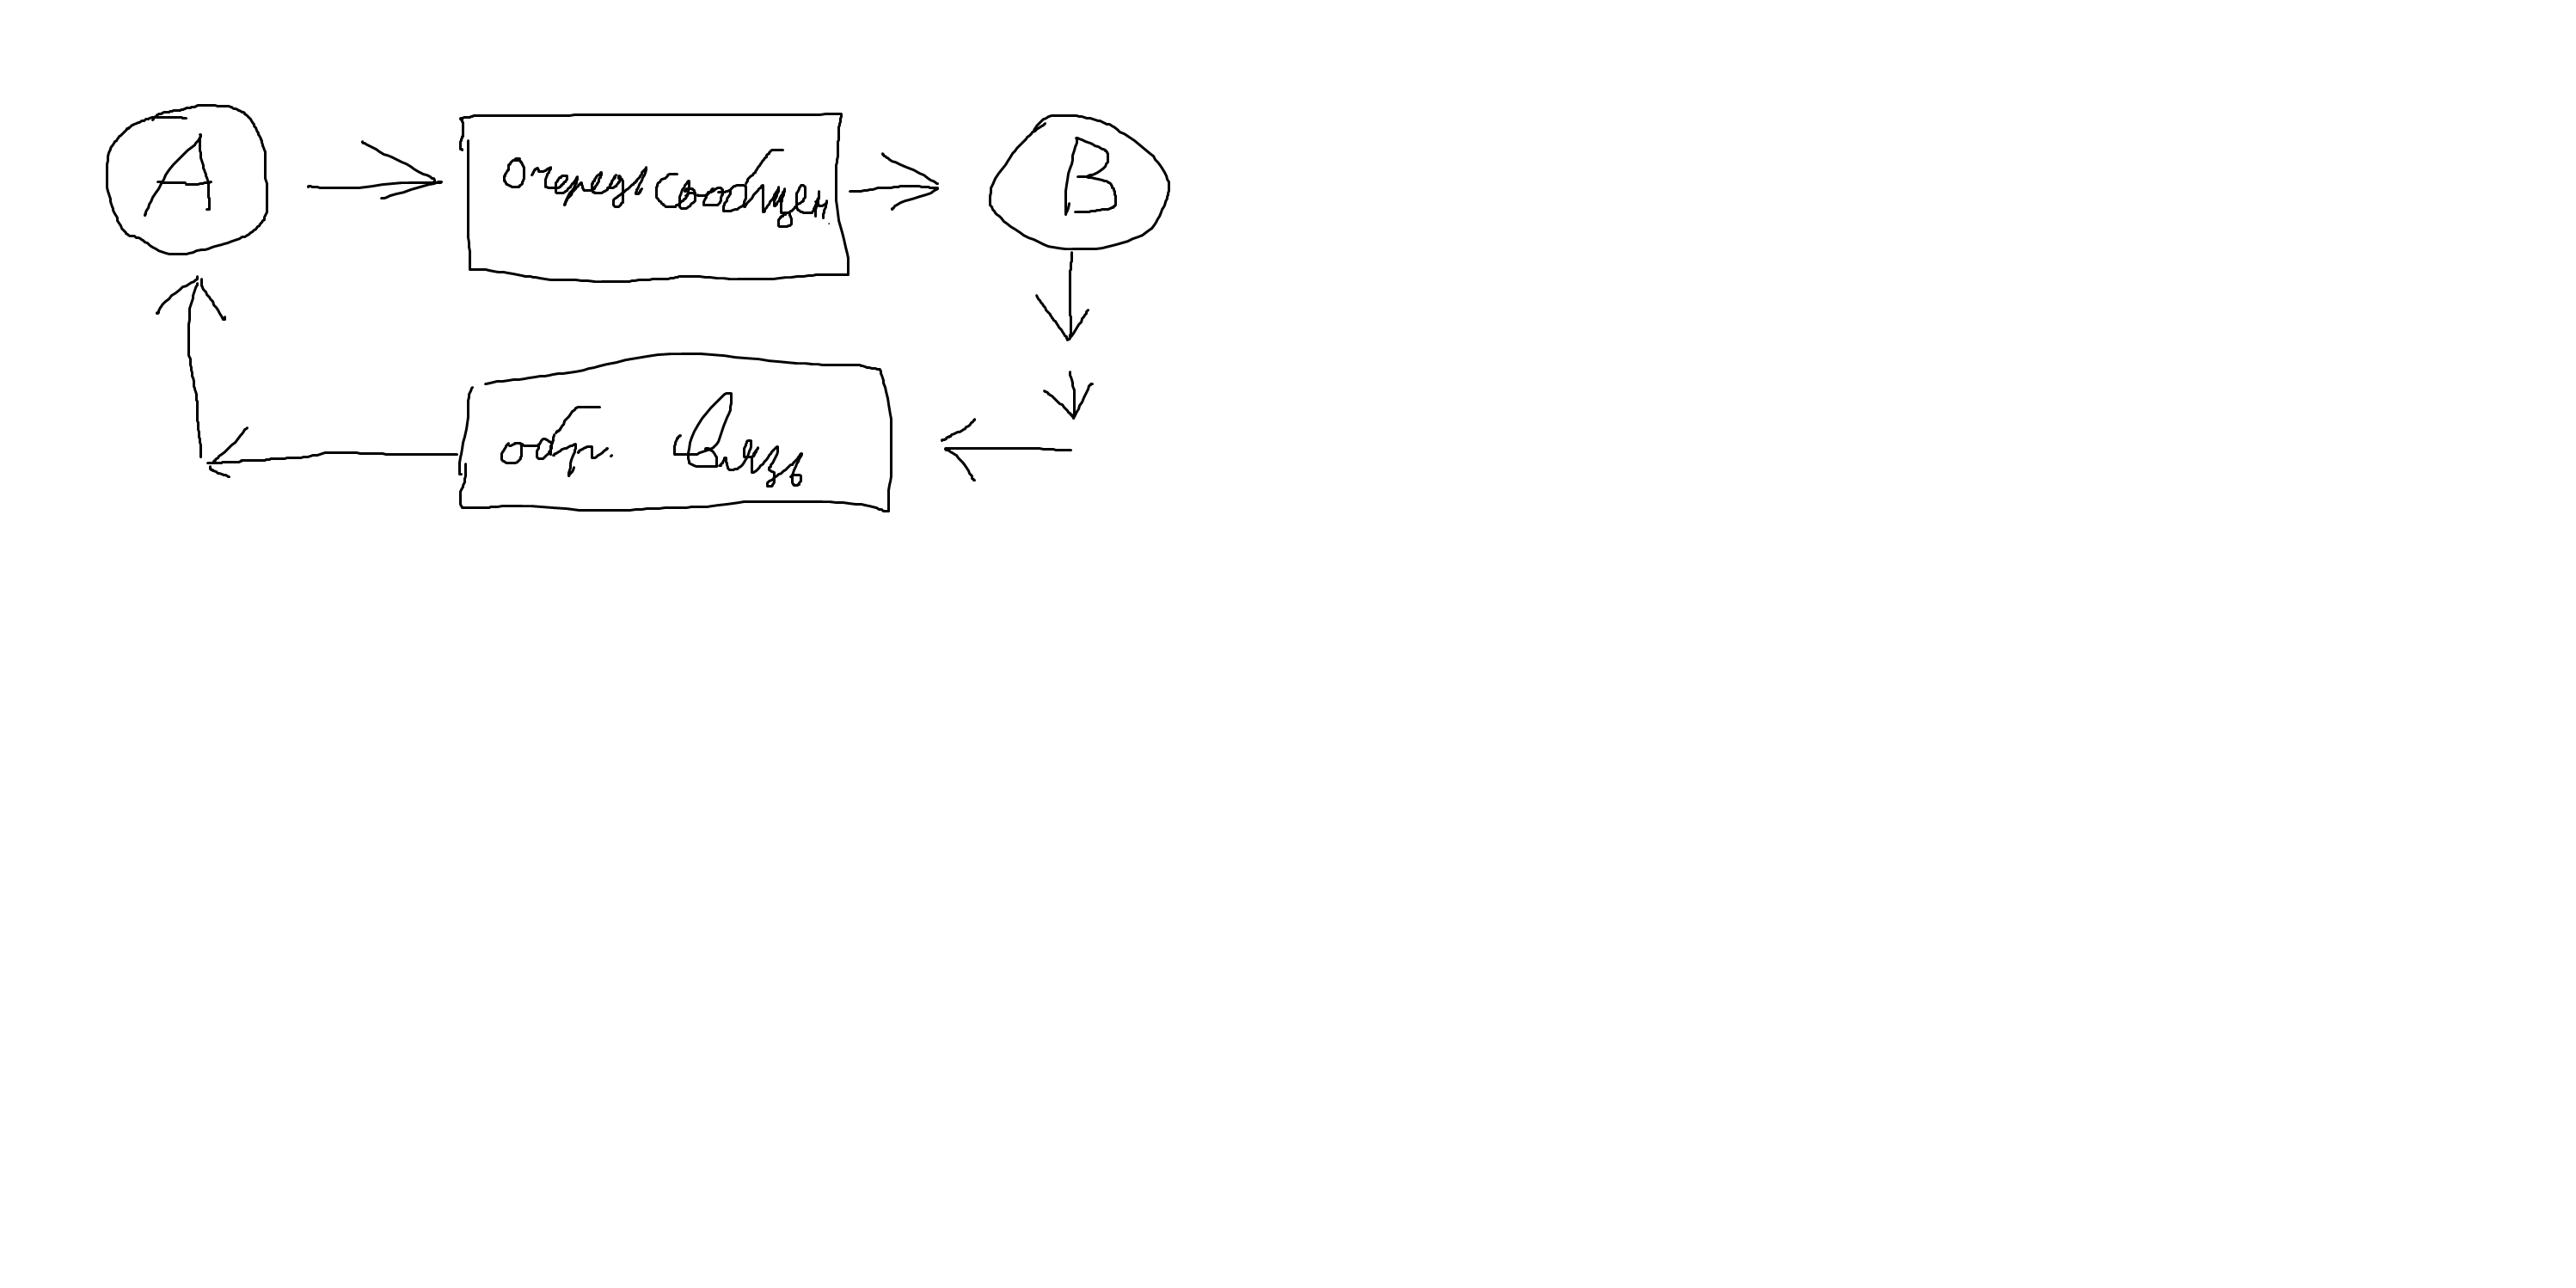 A
очередь сообщен.
B
обр. связь